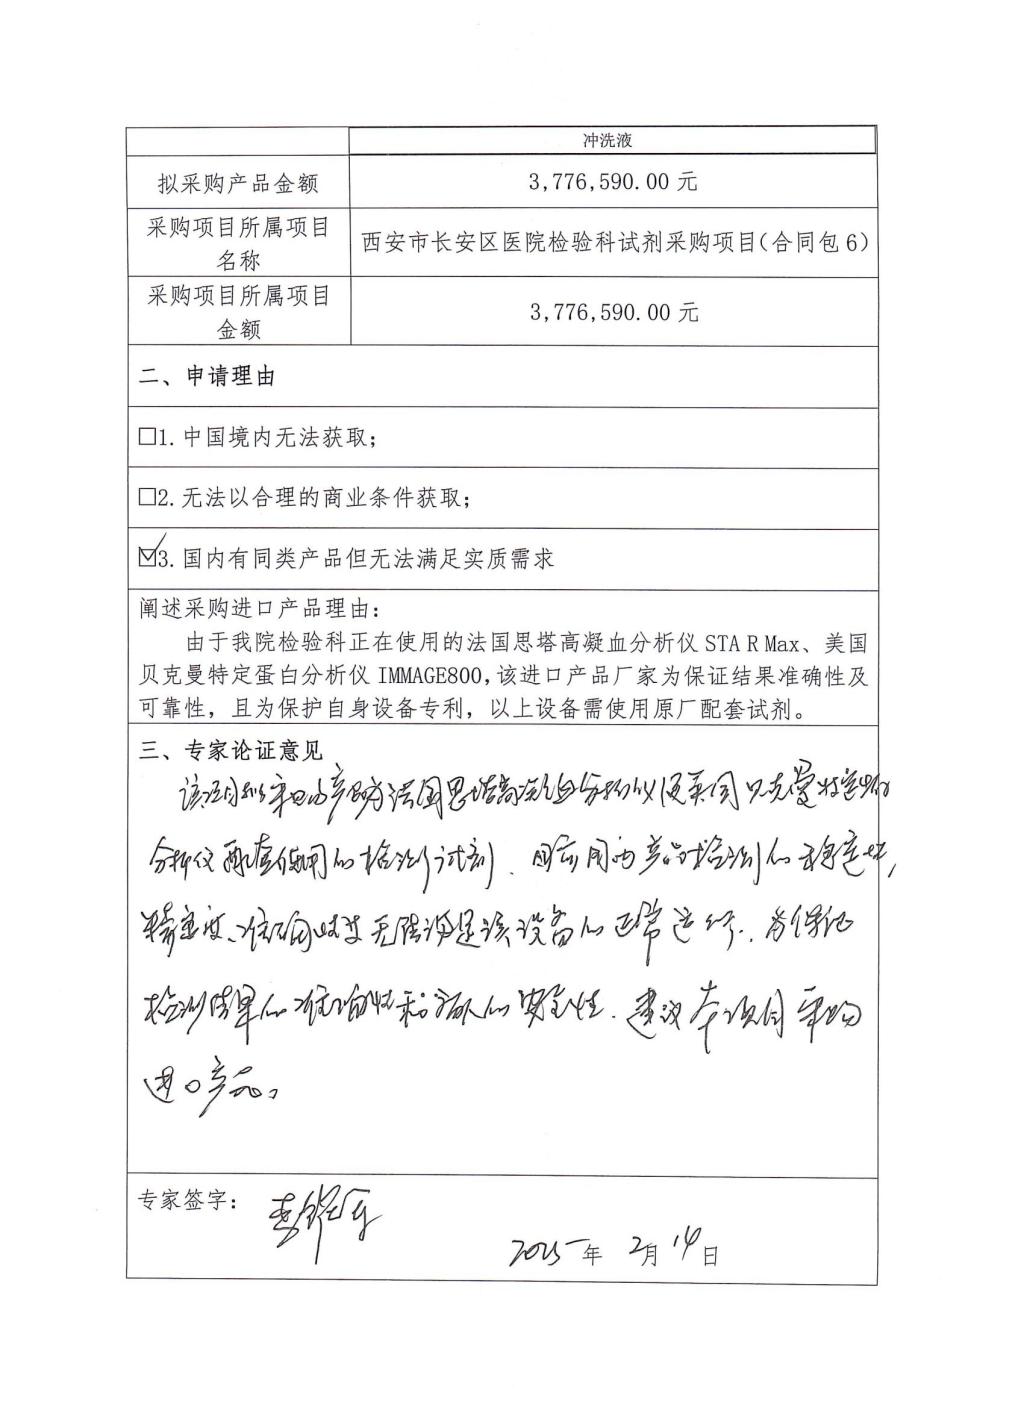 冲洗液
拟采购产品金额
3,776,590.00 元
采购项目所属项目
名称
西安市长安区医院检验科试剂采购项目(合同包 6)
采购项目所属项目
金额
3,776,590.00 元
二、申请理由
□1. 中国境内无法获取;
□2. 无法以合理的商业条件获取;
☑3. 国内有同类产品但无法满足实质需求
阐述采购进口产品理由:
由于我院检验科正在使用的法国思塔高凝血分析仪 STA R Max、美国
贝克曼特定蛋白分析仪 IMMAGE800,该进口产品厂家为保证结果准确性及
可靠性，且为保护自身设备专利，以上设备需使用原厂配套试剂。
三、专家论证意见
该项目拟采购的产品为法国思塔高凝血分析仪及美国贝克曼特定蛋白
分析仪配套使用的检测试剂．目前国内产品检测的稳定性,
精密度、准确性等无法满足该设备的正常运行．为保证
检测结果的准确性和病人的安全性．建议本项目采购
进口产品。
专家签字:
2025年 2月 14日